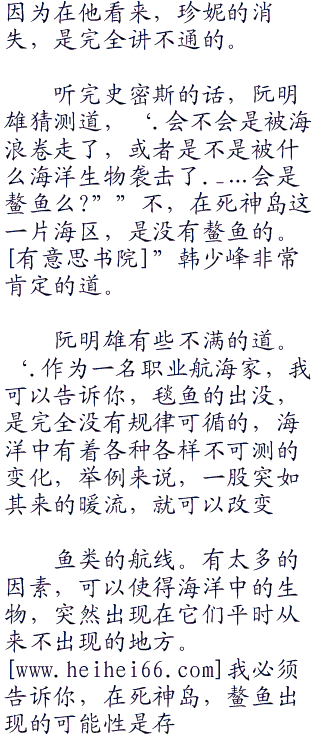 因为在他看来，珍妮的消
失，是完全讲不通的。
听完史密斯的话，阮明
雄猜测道，‘.会不会是被海
浪卷走了，或者是不是被什
么海洋生物袭击了._…会是
鳌鱼么?””不，在死神岛这
一片海区，是没有鳌鱼的。
[有意思书院]”韩少峰非常
肯定的道。
阮明雄有些不满的道。
‘.作为一名职业航海家，我
可以告诉你，毯鱼的出没，
是完全没有规律可循的，海
洋中有着各种各样不可测的
变化，举例来说，一股突如
其来的暖流，就可以改变
鱼类的航线。有太多的
因素，可以使得海洋中的生
物，突然出现在它们平时从
来不出现的地方。
[www.heihei66.com]我必须
告诉你，在死神岛，鳌鱼出
现的可能性是存